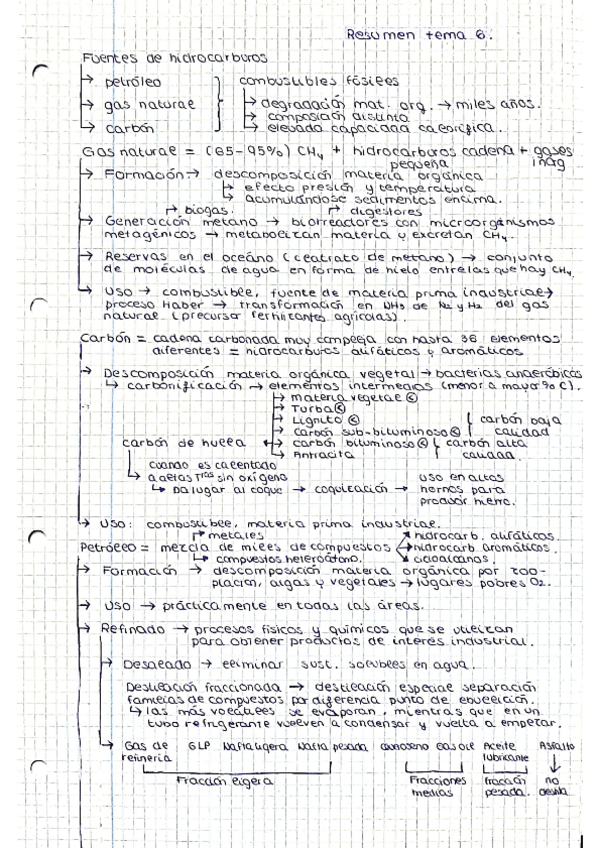 Resumen tema 6.
Fuentes de hidrocarburos
→ petróleo } combustibles fósiles
→ gas natural → degradación mat. org. → miles años.
→ carbón → composición distinta
→ elevada capacidad calorífica.
Gas natural = (85-95%) CH4 + hidrocarburos cadena + gases
pequeña inog
→ Formación → descomposición materia orgánica
→ efecto presión y temperatura
→ acumulándose sedimentos encima.
→ biogas. → digestores
→ Generación metano → biorreactores con microorganismos
metagénicos → metabolizan materia y excretan CH4.
→ Reservas en el océano (cleatrato de metano) → conjunto
de moléculas de agua en forma de hielo entre las que hay CH4.
→ Uso → combustible, fuente de materia prima industrial →
proceso Haber → transformación en NH3 de N2 y H2 del gas
natural. (precursor fertilizantes agrícolas).
Carbón = cadena carbonada muy compleja con hasta 36 elementos
diferentes = hidrocarburos alifáticos y aromáticos
→ Descomposición materia orgánica vegetal → bacterias anaeróbicas
→ carbonificación → elementos intermedios (menor a mayor % C).
→ materia vegetal
→ Turba
→ Lignito { carbón baja
→ carbón sub-bituminoso calidad
carbón de hulla ↔ carbón bituminoso { carbón alta
→ Antracita calidad.
cuando es calentado
→ a altas Tras sin oxígeno uso en altos
→ Da lugar al coque → coquización → hornos para
producir hierro.
→ Uso: combustible, materia prima industrial.
→ metales → hidrocarb. alifáticos.
Petróleo = mezcla de miles de compuestos → hidrocarb. aromáticos.
→ compuestos heteroátomo. → cicloalcanos.
→ Formación → descomposición materia orgánica por zoo-
placton, algas y vegetales → lugares pobres O2.
→ Uso → prácticamente en todas las áreas.
→ Refinado → procesos físicos y químicos que se utilizan
para obtener productos de interés industrial.
→ Desalado → eliminar sust. solubles en agua.
Destilación fraccionada → destilación especial separación
familias de compuestos por diferencia punto de ebullición.
→ las más volátiles se evaporan, mientras que en un
tubo refrigerante vuelven a condensar y vuelta a empezar.
→ Gas de GLP Nafta ligera Nafta pesada queroseno gasoil Aceite Asfalto
refinería lubricante
Fracción ligera Fracciones fracción no
medias pesada. destila